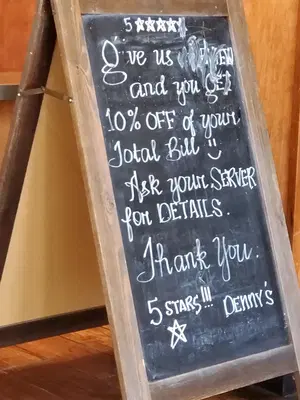 5 ★★★★★
Give us
and you GET
10% OFF of your
Total Bill
Ask your SERVER
for DETAILS.
Thank You.
5 STARS!!! DENNY'S